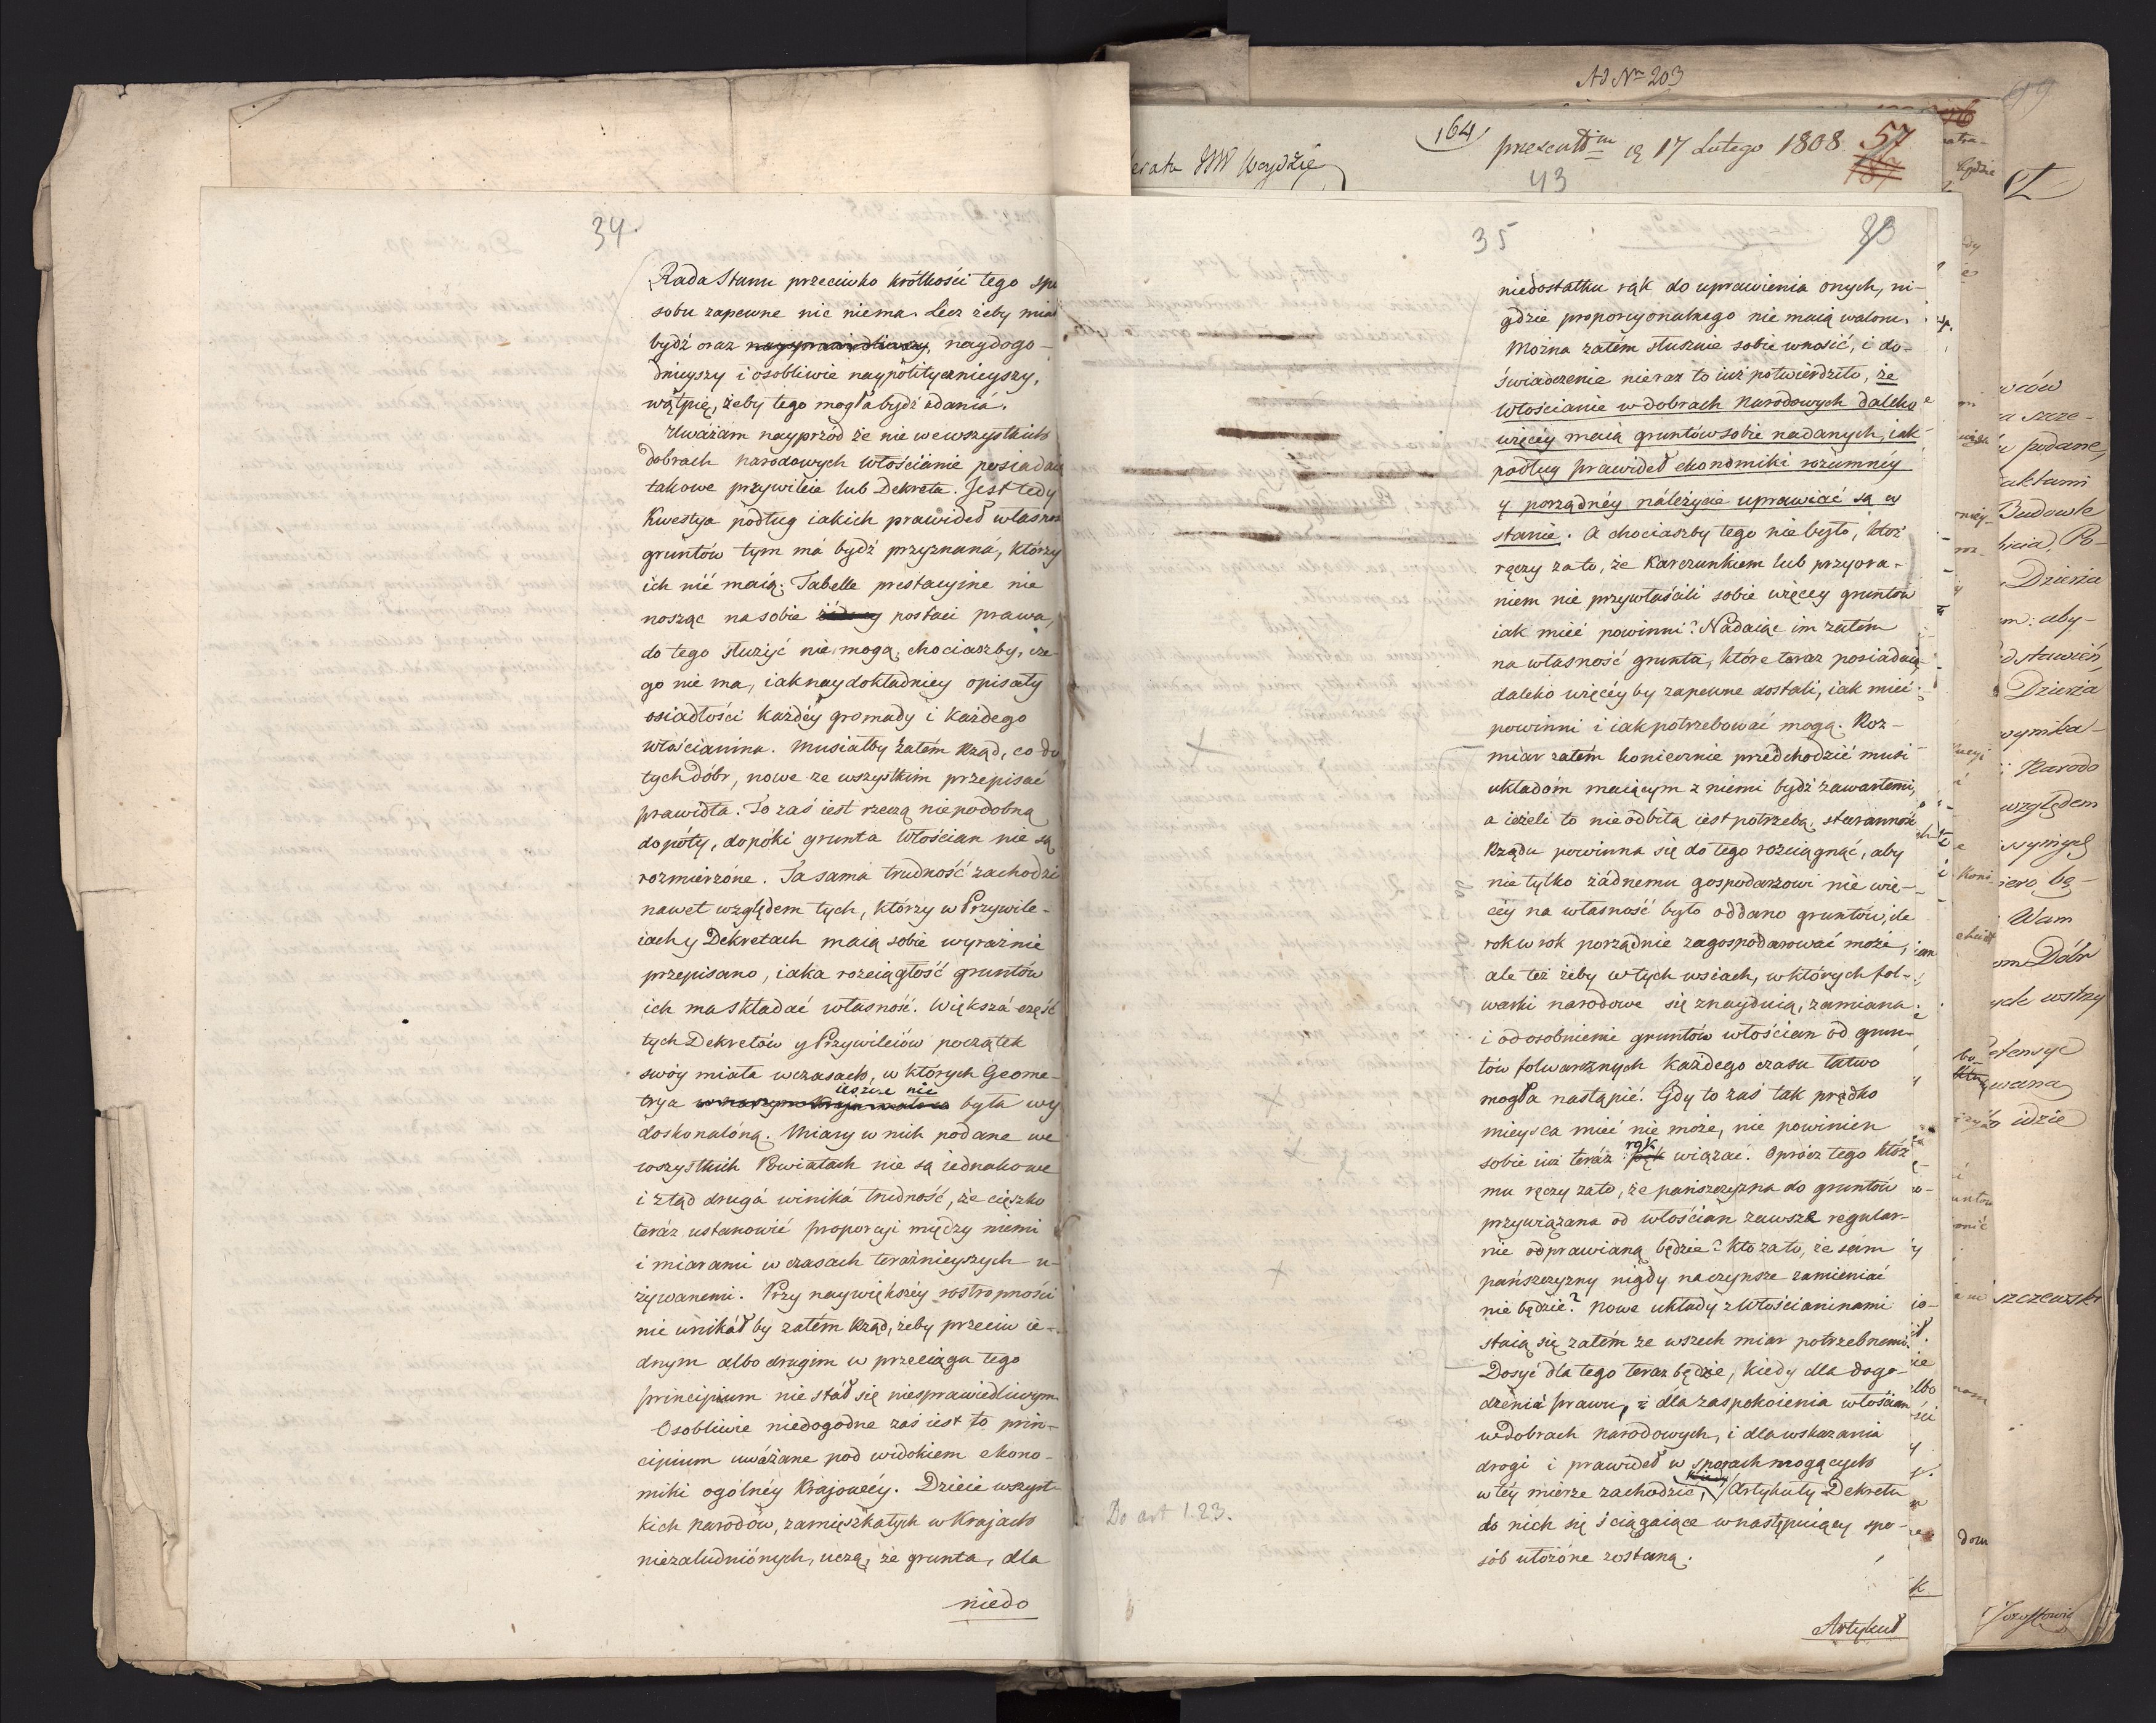 Ad Nrò 203
164 praesentm 17 Lutego 1808. 57
43
34.
Rada Stanu przeciwko krótkości tego spo
sobu zapewne nic niema. Lecz żeby miał
bydź oraz naysprawiedliwszy, naydogo-
dnieyszy i osobliwie naypolitycznieyszy,
wątpię, żeby tego mogła bydź zdania.
Uważam nayprzód że nie we wszystkich
dobrach narodowych włościanie posiadaią
takowe przywileia lub Dekreta. Jest tedy
kwestya podług iakich prawideł własność
gruntów tym má bydź przyznaná, którzy
ich nié maią. Tabelle prestacyine nie
nosząc na sobie żadney postaci prawa,
do tego służyć nie mogą, chociaszby, cze-
go nie ma, iak naydokładniey opisały
osiadłości każdéy gromady i każdego
włościanina. Musiałby zatém Rząd, co do
tych dóbr, nowe ze wszystkim przepisać
prawidła. To zaś iest rzeczą niepodobną
dopóty, dopóki grunta Włościan nie są
rozmierzóne. Ta sama trudność zachodzi
nawet względem tych, którzy w Przywile-
iach y Dekretach maią sobie wyraźnie
przepisano, iaka rozciągłość gruntów
ich ma składać własność. Większá część
tych Dekretów y Przywileiów początek
swóy miała w czasach, w których Geome-
ieszcze nie
trya w naszym kraju mało co była wy
doskonalóną. Miary w nich podane we
wszystkich Powiatach nie są iednakowe
i ztąd drugá winiká trudność, że cięszko
teráz ustanowić proporcyi między niemi
i miarami w czasach teraźnieyszych u-
żywanemi. Przy naywiększéy rostropności
nie unikáłby zatém Rząd, żeby przeciw ie-
dnym albo drugim w przeciągu tego
principium nie stáł się niesprawiedliwym.
Osobliwie niedogodne zaś iest to prin-
cipium uważane pod widokiem ekono-
miki ogólnéy Krajowéy. Dzieie wszyst-
kich narodów, zamięszkałych w Krajach
niezaludniónych, uczą, że grunta, dla
niedo
35
83
niedostatku rąk do uprawienia onych, ni-
gdzie proporcyonalnego nie maią waloru.
Można zatém słusznie sobie wnosić, i do-
świadczenie nieraz to iuż potwierdziło, że
włościanie w dobrach Narodowych daleko
więcéy maią gruntów sobie nadanych, iak
podług prawideł ekonomiki rozumnéy
y porządnéy náleżycie uprawiać są w
stanie. A chociaszby tego nie było, któż
ręczy za to, że karczunkiem lub przyora-
niem nie przywłaścili sobie więcey gruntów
iak mieć powinni? Nadaiąc im zatém
na własność grunta, które teraz posiadaią
daleko więcéy by zapewne dostali, iak mieć
powinni i iak potrzebować mogą. Roz-
miar zatém koniecznie przedchodzić musi
układóm maiącym z niemi bydź zawartemi,
a ieżeli to nieodbitą iest potrzebą, staranność
Rządu powinna się do tego rozciągnąć, aby
nie tylko żádnemu gospodarzowi nie wię-
céy na własność było oddano gruntów, ile
rok w rok porządnie zagospodarować może,
ale też żeby w tych wsiach, w których fol-
warki narodowe się znayduią, zamiana
i odosobnienie gruntów włościan od grun-
tów folwarcznych każdego czasu łatwo
mogła nastąpić. Gdy to zaś tak prędko
mieysca mieć nie może, nie powinien
rąk
sobie iuż teráz wiązać. Oprócz tego któż
mu ręczy za to, że pańszczyzna do gruntów
przywiązana od włościan zawsze regular-
nie odprawianą będzie? kto za to, że sám
pańszczyzny nigdy na czynsze zamieniać
nie będzie? Nowe układy z Włościaninami
staią się zatém ze wszech miar potrzebnemi.
Dosyć dla tego teraz będzie, kiedy dla dogo-
dzénia prawu, i dla zaspokoienia włościan
w dobrach narodowych, i dla wskazania
drogi i prawideł w sporach mogących
kiedy
w téy mierze zachodzić, Artykuły Dekretu
do nich się ściągaiące w następuiący spo-
sób ułożóne zostaną.
Do art 1.23.
Artykuł